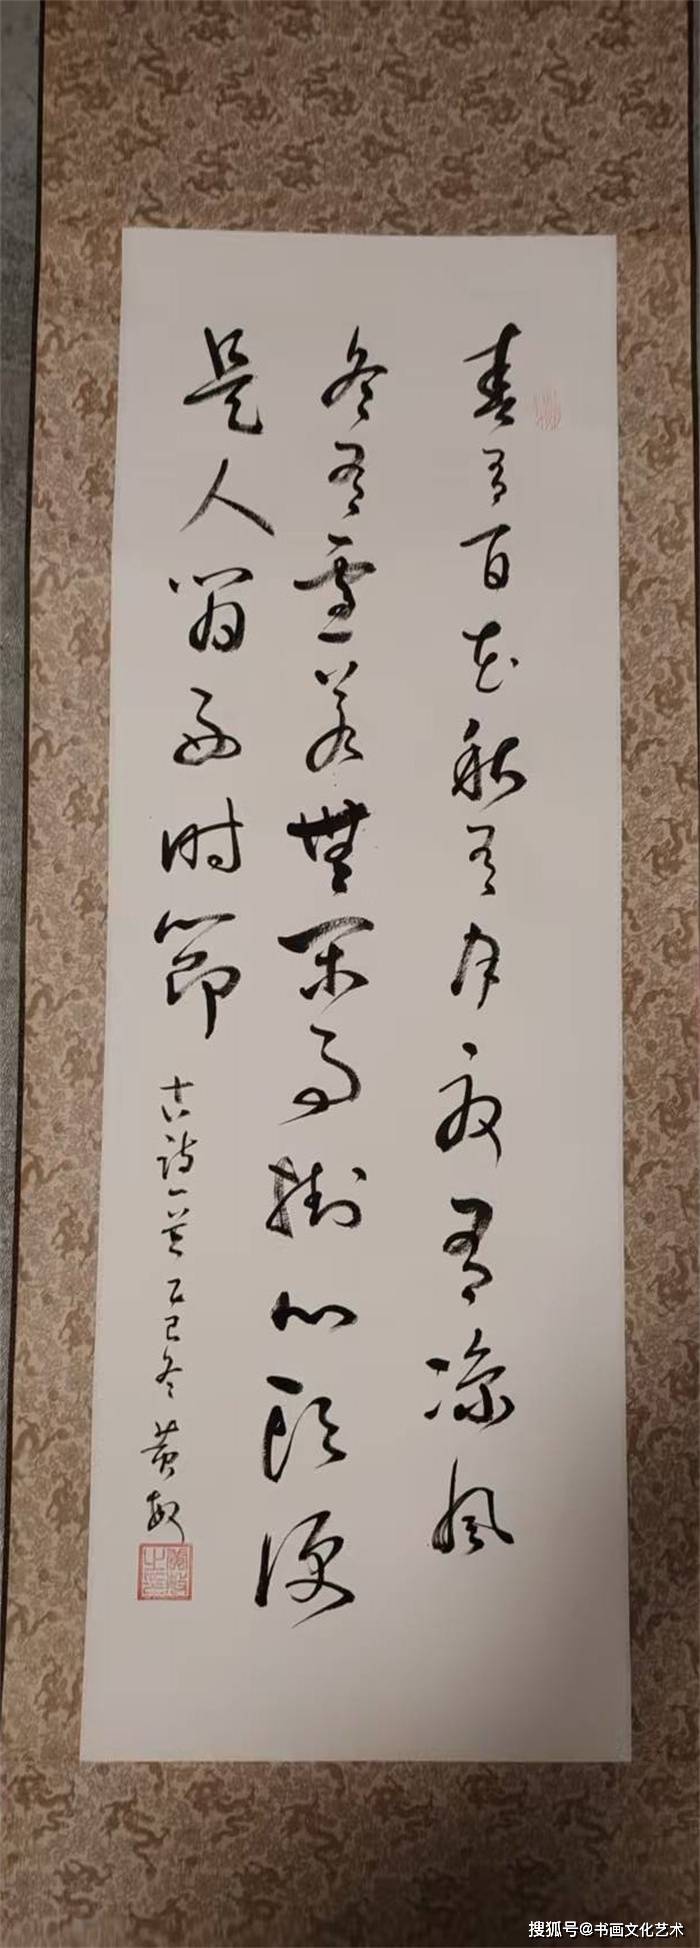 春有百花秋有月夏有凉风
冬有雪若無闲事掛心头便
是人间好时節
古诗一首乙巳冬黄敏
搜狐号@书画文化艺术